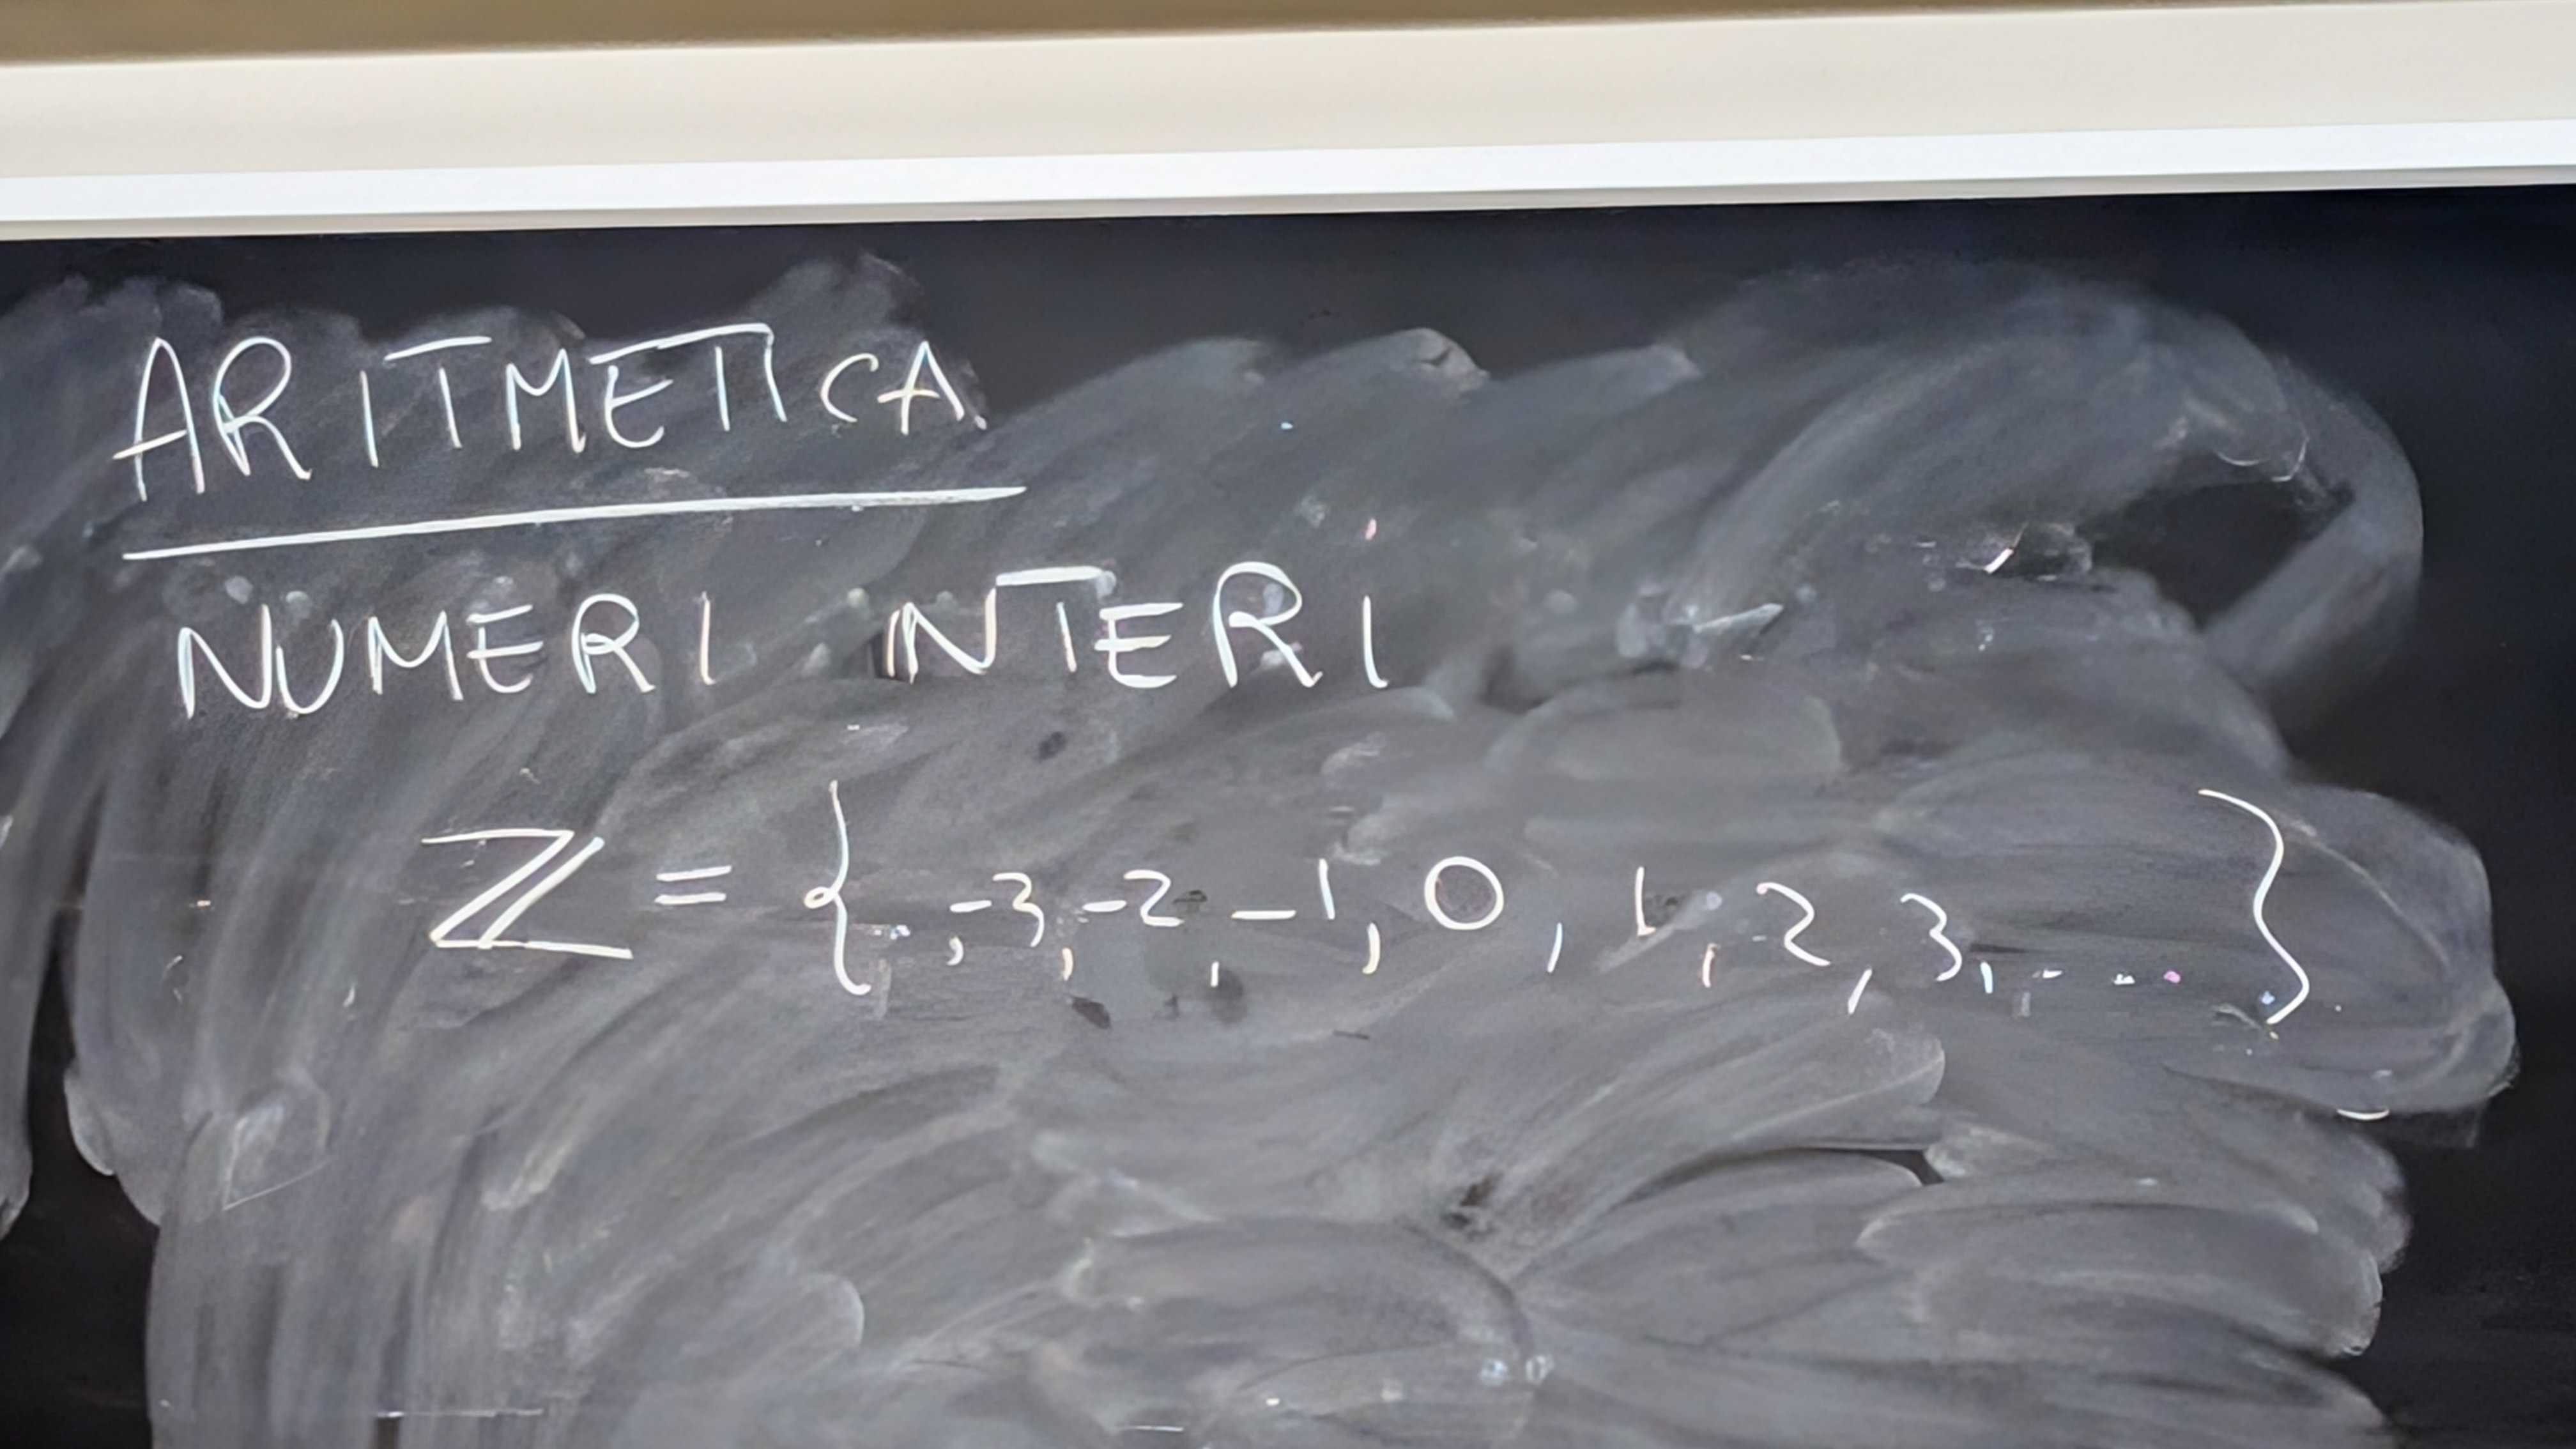 ARITMETICA
NUMERI INTERI
ℤ = {.., -3, -2, -1, 0, 1, 2, 3, ... }